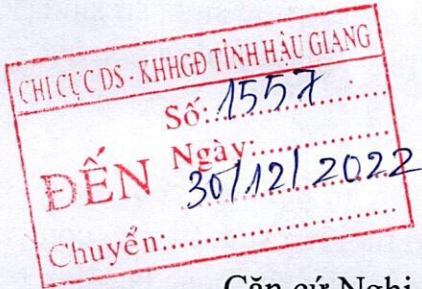 CHI CỤC DS - KHHGĐ TỈNH HẬU GIANG
Số:.1557................
ĐẾN Ngày:................
30/12/2022
Chuyển:...............................
Căn cứ Nghị